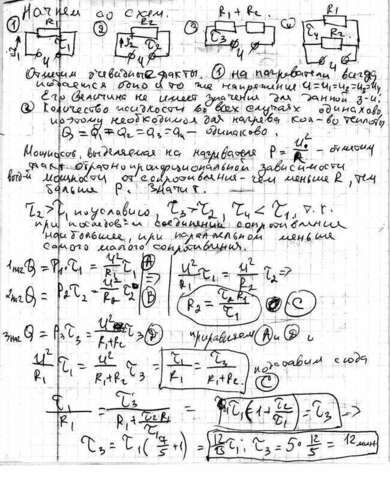 Начнем со схем.
① R₁ ② R₂ ③ R₁ + R₂ ④ R₁
τ₁ τ₂ τ₃ τ₄ R₂
U U U U
Отметим очевидные факты. ① на нагреватели всегда
подается одно и то же напряжение U=U₁=U₂=U₃=U₄
Его величина не имеет значения для данной з-и.
② Количество жидкости во всех случаях одинаково
поэтому необходимое для нагрева кол-во теплоты
Q₁ = Q₂ = Q₃ = Q₄ - одинаково.
Мощность, выделяемая на нагревателе P = U²/R - отметим
факт обратнопропорциональной зависимости
мощности от сопротивления - чем меньше R, тем
больше P. Значит
τ₂ > τ₁ по условию τ₃ > τ₂, τ₄ < τ₁, т.к.
при последов-м соединении сопротивление
наибольшее, при параллельном меньше
самого малого сопротивления.
Q = P₁τ₁ = U²/R₁ τ₁ Ⓐ U²/R₁ τ₁ = U²/R₂ τ₂ =>
Q = P₂τ₂ = U²/R₂ τ₂ Ⓑ R₂ = τ₂R₁/τ₁ - Ⓒ
Q = P₃τ₃ = U²/(R₁+R₂) τ₃ приравняем Ⓐ и
U²/R₁ τ₁ = U²/(R₁+R₂) τ₃ = τ₁/R₁ = τ₃/(R₁+R₂) подставим сюда
Ⓒ
τ₁/R₁ = τ₃/(R₁ + τ₂R₁/τ₁) = τ₁(1+τ₂/τ₁) = τ₃ =>
τ₃ = τ₁(7/5+1) = 12/5 τ₁; τ₃ = 5·12/5 = 12 мин